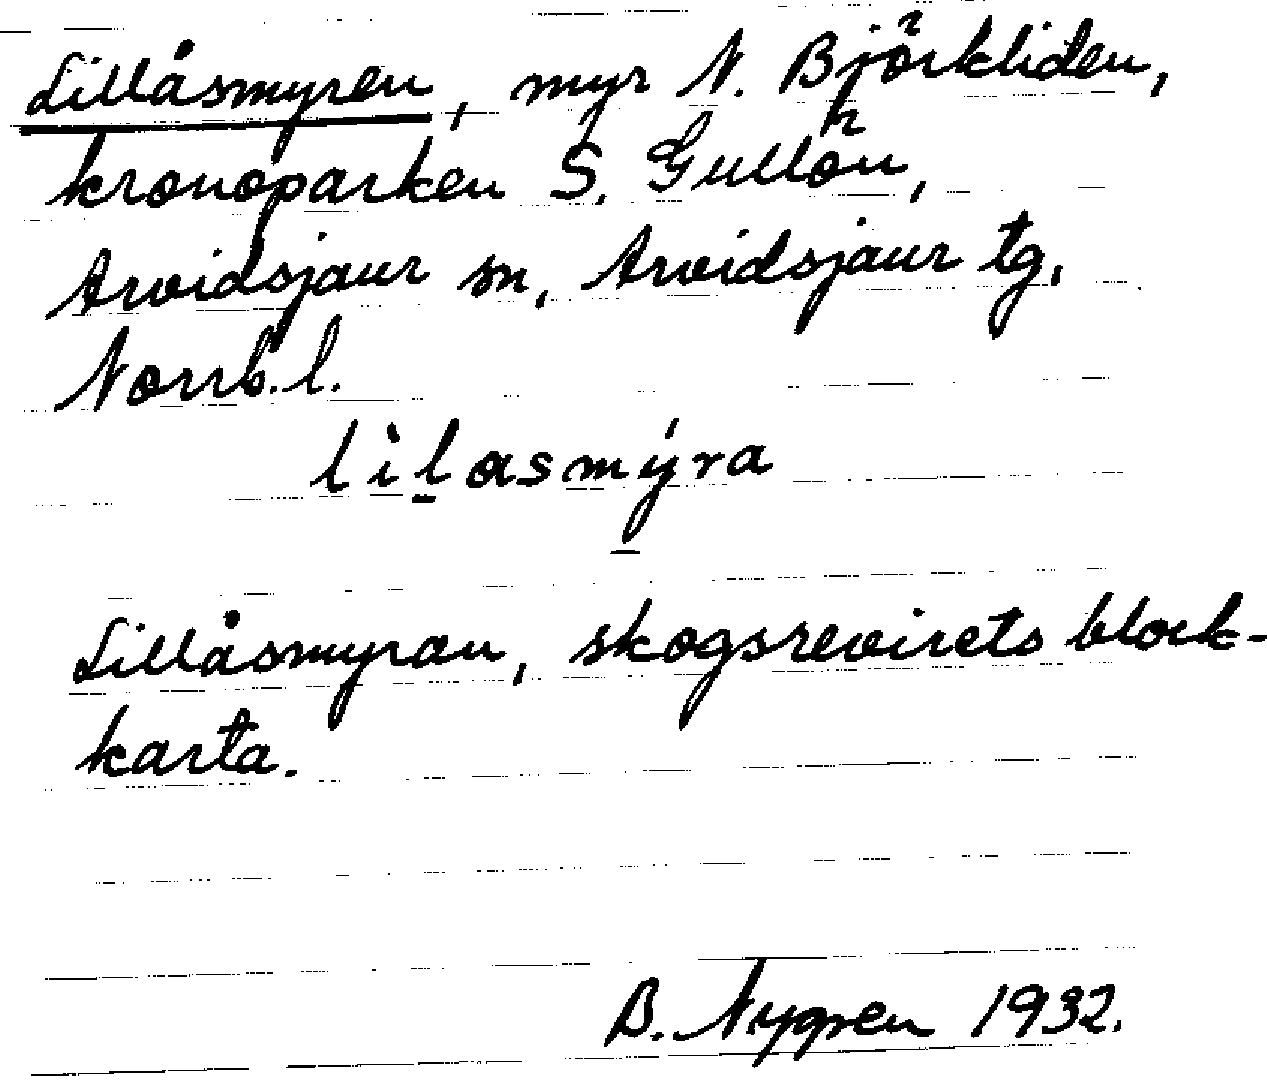 Lillåsmyren, myr N. Björkliden,
kronoparken S. Gullön,
Arvidsjaur sn, Arvidsjaur tg,
Norrb. l.
lìl̠asmýra
Lillåsmyran, skogsrevirets block-
karta.
B. Nygren 1932.